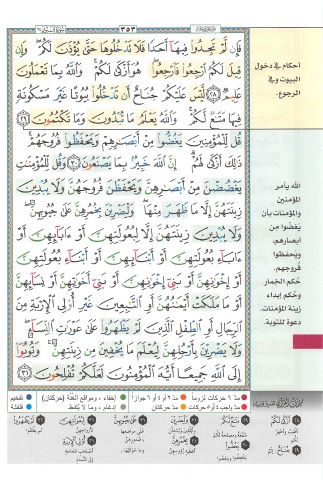 ٣٥٣
فَإِن لَّمْ تَجِدُوا۟ فِيهَآ أَحَدًا فَلَا تَدْخُلُوهَا حَتَّىٰ يُؤْذَنَ لَكُمْ ۖ وَإِن
قِيلَ لَكُمُ ٱرْجِعُوا۟ فَٱرْجِعُوا۟ ۖ هُوَ أَزْكَىٰ لَكُمْ ۚ وَٱللَّهُ بِمَا تَعْمَلُونَ
عَلِيمٌ ٢٨ لَّيْسَ عَلَيْكُمْ جُنَاحٌ أَن تَدْخُلُوا۟ بُيُوتًا غَيْرَ مَسْكُونَةٍ
فِيهَا مَتَٰعٌ لَّكُمْ ۚ وَٱللَّهُ يَعْلَمُ مَا تُبْدُونَ وَمَا تَكْتُمُونَ ٢٩
قُل لِّلْمُؤْمِنِينَ يَغُضُّوا۟ مِنْ أَبْصَٰرِهِمْ وَيَحْفَظُوا۟ فُرُوجَهُمْ ۚ
ذَٰلِكَ أَزْكَىٰ لَهُمْ ۗ إِنَّ ٱللَّهَ خَبِيرٌۢ بِمَا يَصْنَعُونَ ٣٠ وَقُل لِّلْمُؤْمِنَٰتِ
يَغْضُضْنَ مِنْ أَبْصَٰرِهِنَّ وَيَحْفَظْنَ فُرُوجَهُنَّ وَلَا يُبْدِينَ
زِينَتَهُنَّ إِلَّا مَا ظَهَرَ مِنْهَا ۖ وَلْيَضْرِبْنَ بِخُمُرِهِنَّ عَلَىٰ جُيُوبِهِنَّ ۖ
وَلَا يُبْدِينَ زِينَتَهُنَّ إِلَّا لِبُعُولَتِهِنَّ أَوْ ءَابَآئِهِنَّ أَوْ
ءَابَآءِ بُعُولَتِهِنَّ أَوْ أَبْنَآئِهِنَّ أَوْ أَبْنَآءِ بُعُولَتِهِنَّ
أَوْ إِخْوَٰنِهِنَّ أَوْ بَنِىٓ إِخْوَٰنِهِنَّ أَوْ بَنِىٓ أَخَوَٰتِهِنَّ أَوْ نِسَآئِهِنَّ
أَوْ مَا مَلَكَتْ أَيْمَٰنُهُنَّ أَوِ ٱلتَّٰبِعِينَ غَيْرِ أُو۟لِى ٱلْإِرْبَةِ مِنَ
ٱلرِّجَالِ أَوِ ٱلطِّفْلِ ٱلَّذِينَ لَمْ يَظْهَرُوا۟ عَلَىٰ عَوْرَٰتِ ٱلنِّسَآءِ ۖ
وَلَا يَضْرِبْنَ بِأَرْجُلِهِنَّ لِيُعْلَمَ مَا يُخْفِينَ مِن زِينَتِهِنَّ ۚ وَتُوبُوٓا۟
إِلَى ٱللَّهِ جَمِيعًا أَيُّهَ ٱلْمُؤْمِنُونَ لَعَلَّكُمْ تُفْلِحُونَ ٣١
احكام في دخول
البيوت وفي
الرجوع.
الله يأمر
المؤمنين
والمؤمنات بأن
يغضوا من
أبصارهم،
ويحفظوا
فروجهم.
حكم الخمار
وحكم إبداء
زينة المؤمنات.
دعوة للتوبة.
مد ٦ حركات لزوماً
مد٢ أو ٤ أو ٦ جوازاً
إخفاء، ومواقع الغُنَّة (حركتان)
تفخيم
مد واجب ٤ أو ٥ حركات
مد حركتان
إدغام، وما لا يُلفظ
قلقلة